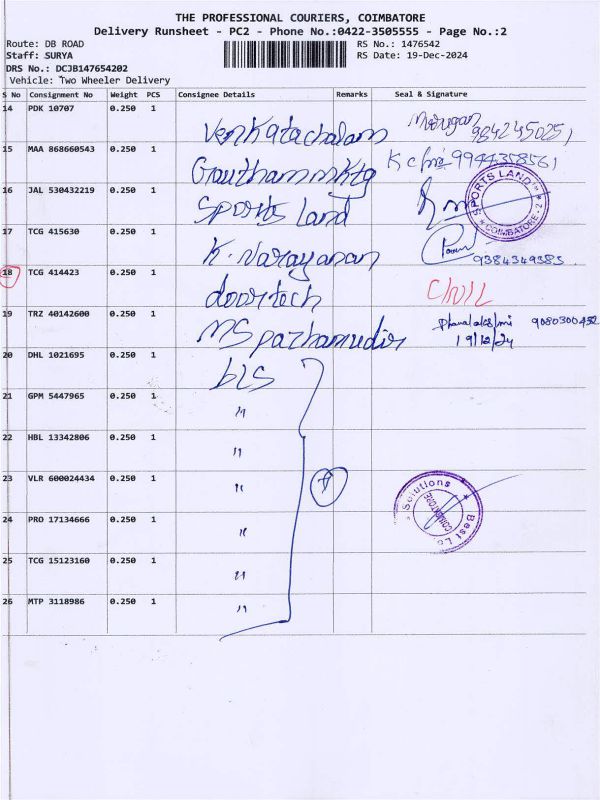 THE PROFESSIONAL COURIERS, COIMBATORE
Delivery Runsheet - PC2 - Phone No.:0422-3505555 - Page No.:2
Route: DB ROAD RS No.: 1476542
Staff: SURYA RS Date: 19-Dec-2024
DRS No.: DCJB147654202
Vehicle: Two Wheeler Delivery
S No Consignment No Weight PCS Consignee Details Remarks Seal & Signature
14 PDK 10707 0.250 1 Venkatachalam Murugan 9842450251
15 MAA 868660543 0.250 1 Gauthammktg 9944358561
16 JAL 530432219 0.250 1 Sports Land SPORTS LAND COIMBATORE-2
17 TCG 415630 0.250 1 K. Narayanan 9384349383
18 TCG 414423 0.250 1 doortech
19 TRZ 40142600 0.250 1 MS pazhamudir Dhanalakshmi 9080300452
19/12/24
20 DHL 1021695 0.250 1 bls
21 GPM 5447965 0.250 1 "
22 HBL 13342806 0.250 1 "
23 VLR 600024434 0.250 1 " Solutions COIMBATORE
24 PRO 17134666 0.250 1 " Best
25 TCG 15123160 0.250 1 "
26 MTP 3118986 0.250 1 "